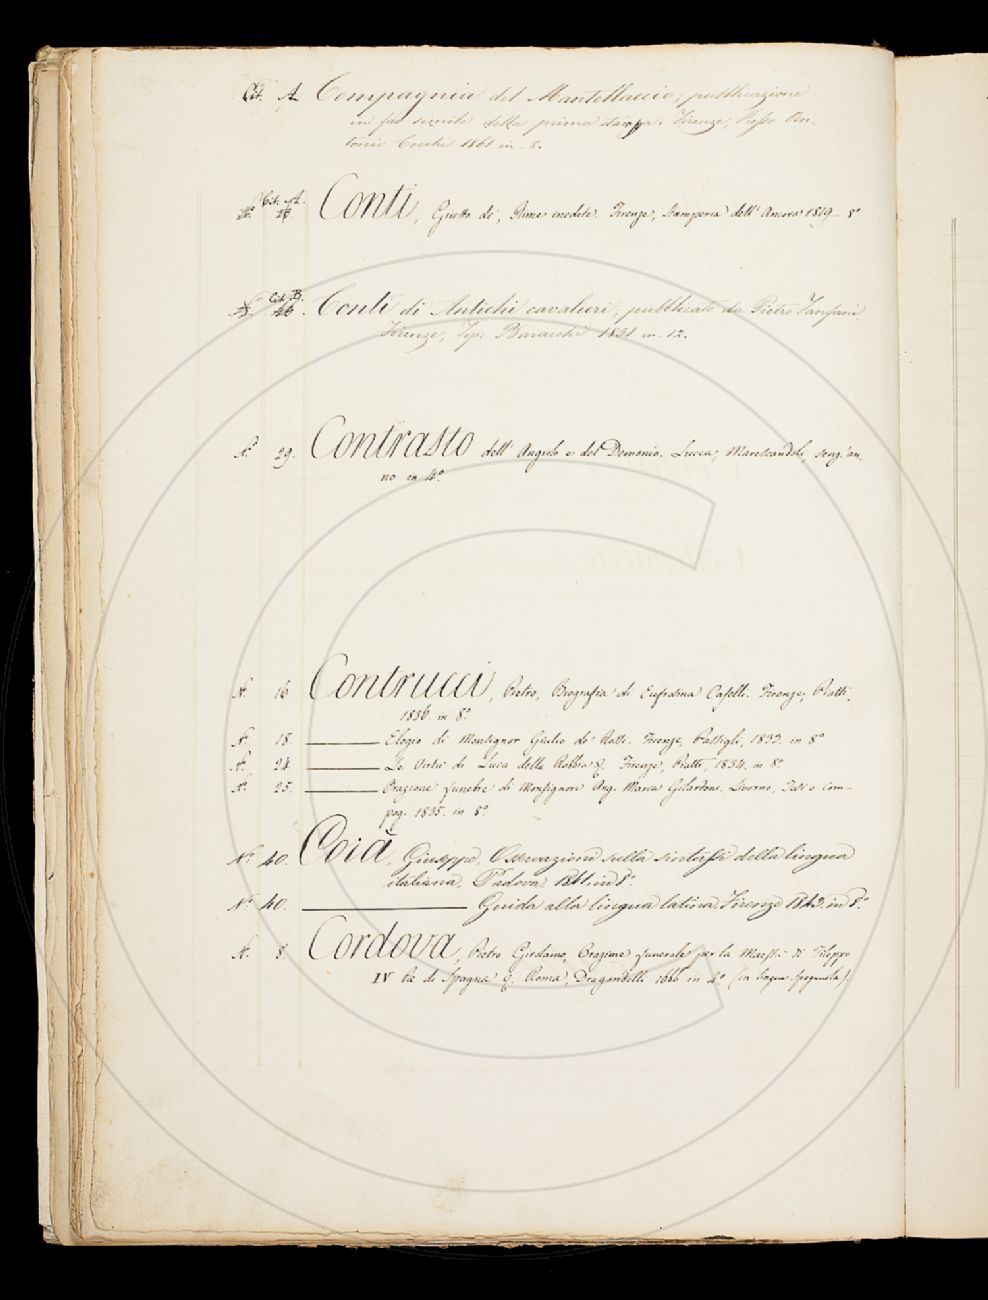 Cit. A. Compagnia del Mantellaccio; pubblicazione
in fac simile della prima stampa. Firenze, Presso An-
tonio Cecchi 1861 in-8.
Cit. A. Conti, Giusto de', Rime inedite. Firenze, Stamperia dell'Ancora 1819-8º
Cit. B. 46. Conti di Antichi cavalieri; pubblicato da Pietro Fanfani.
Firenze, Tip. Baracchi 1851 in-12.
N. 29. Contrasto dell'Angelo e del Demonio. Lucca, Marescandoli, senz'an-
no in 4º
N. 16 Contrucci, Pietro, Biografia di Eufrosina Caselli. Firenze, Piatti,
1836 in 8º
N. 18. Elogio di Monsignor Giulio de' Rossi. Firenze, Passigli, 1833. in 8º
N. 24. Le Virtù di Luca della Robbia &. Firenze, Piatti, 1834. in 8º
N. 25. Orazione funebre di Monsignore Ang. Maria Gilardoni. Livorno, Tesi e Com-
pag. 1835. in 8º
Nº 40. Coià, Giuseppe, Osservazioni sulla sintassi della lingua
italiana. Padova 1841 in 8º.
Nº 40. Guida alla lingua latina. Firenze 1843. in 8º
N. 8 Cordova, Pietro Giordano, Orazione funerale per la Maestà di Filippo
IV Re di Spagna &. Roma, Dragondelli 1666 in 4º (in lingua Spagnuola).